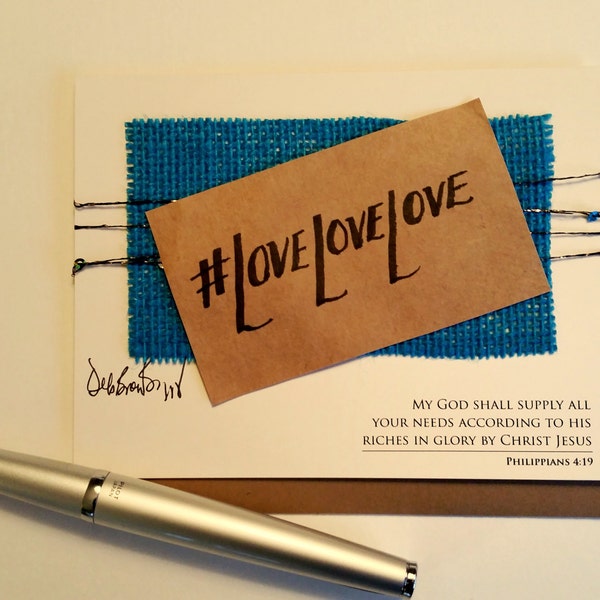 #LOVELOVELOVE
MY GOD SHALL SUPPLY ALL
YOUR NEEDS ACCORDING TO HIS
RICHES IN GLORY BY CHRIST JESUS
PHILIPPIANS 4:19
PILOT